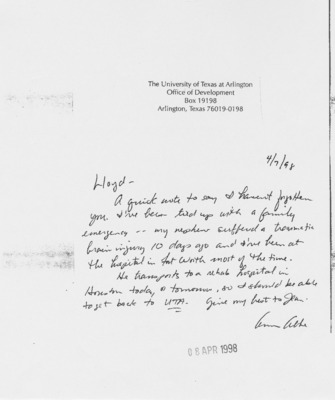 The University of Texas at Arlington
Office of Development
Box 19198
Arlington, Texas 76019-0198
4/7/98
Lloyd -
A quick note to say I haven't forgotten
you. I've been tied up with a family
emergency -- my nephew suffered a traumatic
brain injury 10 days ago and I've been at
the hospital in Fort Worth most of the time.
He transports to a rehab hospital in
Houston today or tomorrow, so I should be able
to get back to UTA. Give my best to Jean.
06 APR 1998